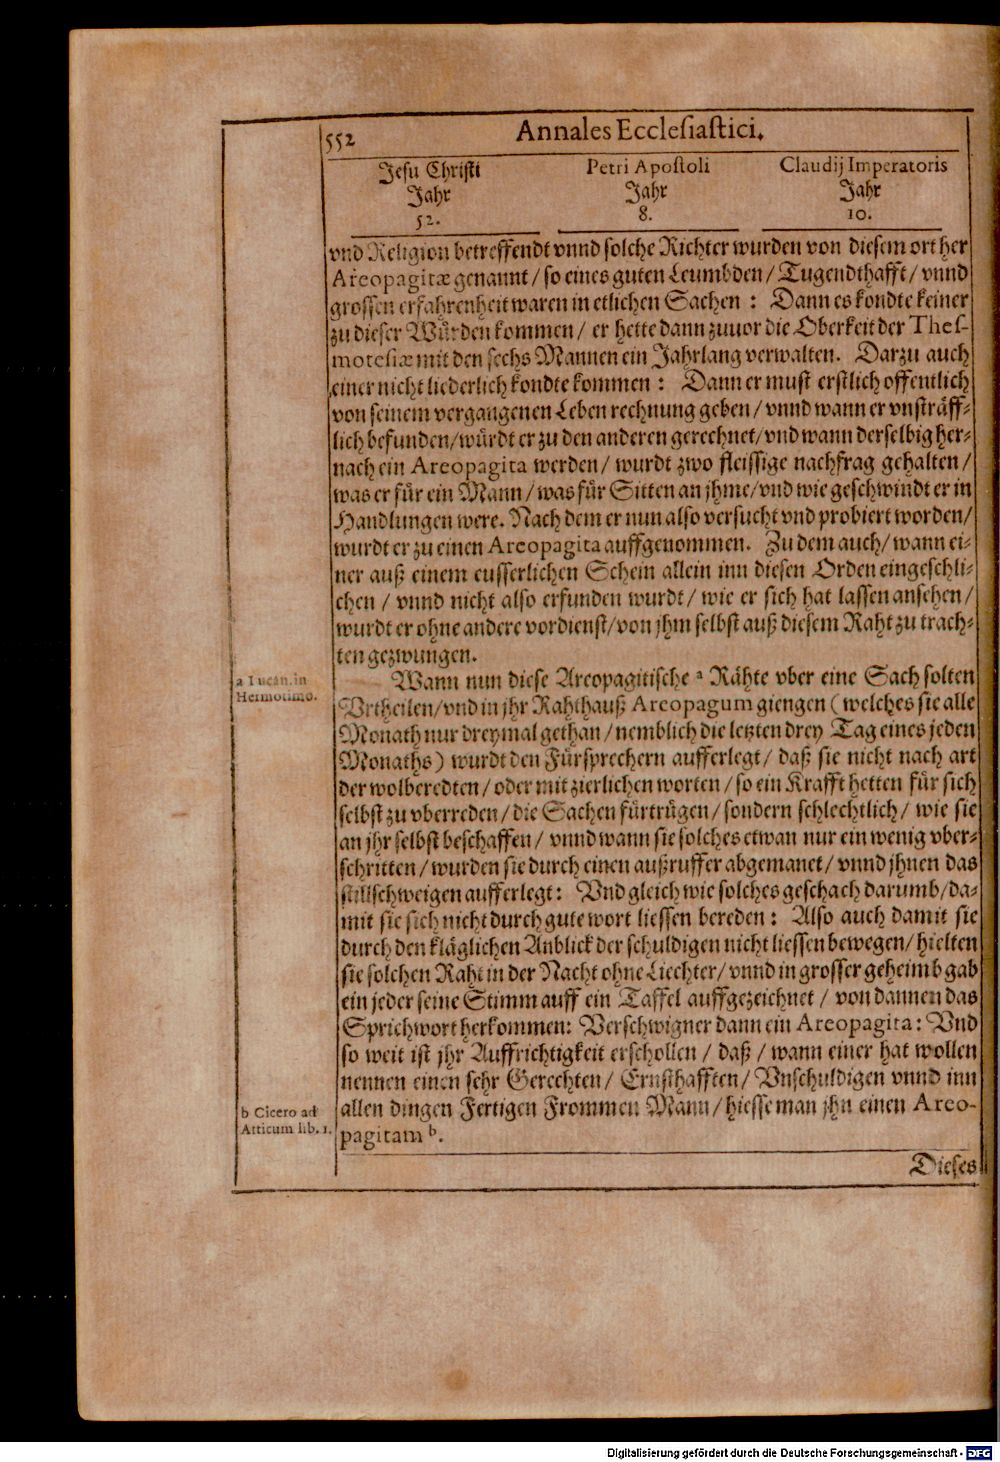 552
Annales Ecclesiastici.
Jesu Christi
Jahr
52.
Petri Apostoli
Jahr
8.
Claudij Imperatoris
Jahr
10.
vnd Religion betreffendt vnnd solche Richter wurden von diesem ort her
Areopagitæ genannt / so eines guten Leumbden / Tugendthafft / vnnd
grossen erfahrenheit waren in etlichen Sachen : Dann es kondte keiner
zu dieser Würden kommen / er hette dann zuuor die Oberkeit der Thes-
motesiæ mit den sechs Mannen ein Jahrlang verwalten. Darzu auch
einer nicht liederlich kondte kommen : Dann er must erstlich offentlich
von seinem vergangenen Leben rechnung geben / vnnd wann er vnsträff-
lich befunden / würdt er zu den anderen gerechnet / vnd wann derselbig her-
nach ein Areopagita werden / wurdt zwo fleissige nachfrag gehalten /
was er für ein Mann / was für Sitten an jhme / vnd wie geschwindt er in
Handlungen were. Nach dem er nun also versucht vnd probiert worden /
wurdt er zu einen Areopagita auffgenommen. Zu dem auch / wann ei-
ner auß einem eusserlichen Schein allein inn diesen Orden eingeschli-
chen / vnnd nicht also erfunden wurdt / wie er sich hat lassen ansehen /
wurdt er ohne andere vordienst / von jhm selbst auß diesem Raht zu trach-
ten gezwungen.
Wann nun diese Areopagitische a Rähte vber eine Sach solten
Vrtheilen / vnd in jhr Rahthauß Areopagum giengen ( welches sie alle
Monath nur dreymal gethan / nemblich die letzten drey Tag eines jeden
Monaths ) wurdt den Fürsprechern aufferlegt / daß sie nicht nach art
der wolberedten / oder mit zierlichen worten / so ein Krafft hetten für sich
selbst zu vberreden / die Sachen fürtrügen / sondern schlechtlich / wie sie
an jhr selbst beschaffen / vnnd wann sie solches etwan nur ein wenig vber-
schritten / wurden sie durch einen außruffer abgemanet / vnnd jhnen das
stillschweigen aufferlegt : Vnd gleich wie solches geschach darumb / da-
mit sie sich nicht durch gute wort liessen bereden : Also auch damit sie
durch den kläglichen Anblick der schuldigen nicht liessen bewegen / hielten
sie solchen Raht in der Nacht ohne Liechter / vnnd in grosser geheimb gab
ein jeder seine Stimm auff ein Taffel auffgezeichnet / von dannen das
Sprichwort herkommen : Verschwigner dann ein Areopagita : Vnd
so weit ist jhr Auffrichtigkeit erschollen / daß / wann einer hat wollen
nennen einen sehr Gerechten / Ernsthafften / Vnschuldigen vnnd inn
allen dingen Fertigen Frommen Mann / hiesse man jhn einen Areo-
pagitam b.
a Lucan. in
Hermotimo.
b Cicero ad
Atticum lib. 1.
Dieses
Digitalisierung gefördert durch die Deutsche Forschungsgemeinschaft - DFG